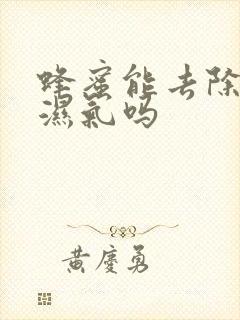 蜂蜜能去除
濕氣吗
黄慶勇